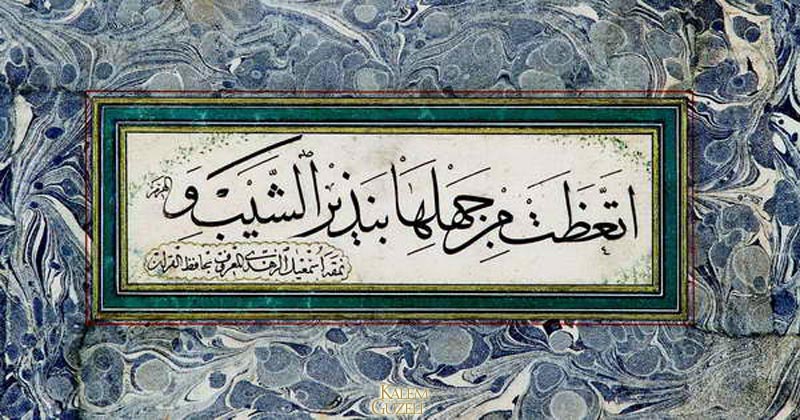 اتَّعَظَتْ مِنْ جَهْلِهَا بِنَذِيْرِ الشَّيْبِ وَالهرم
نمقه اسمعيل الزهدى المعروف بحافظ القرآن
KALEM
GÜZELİ